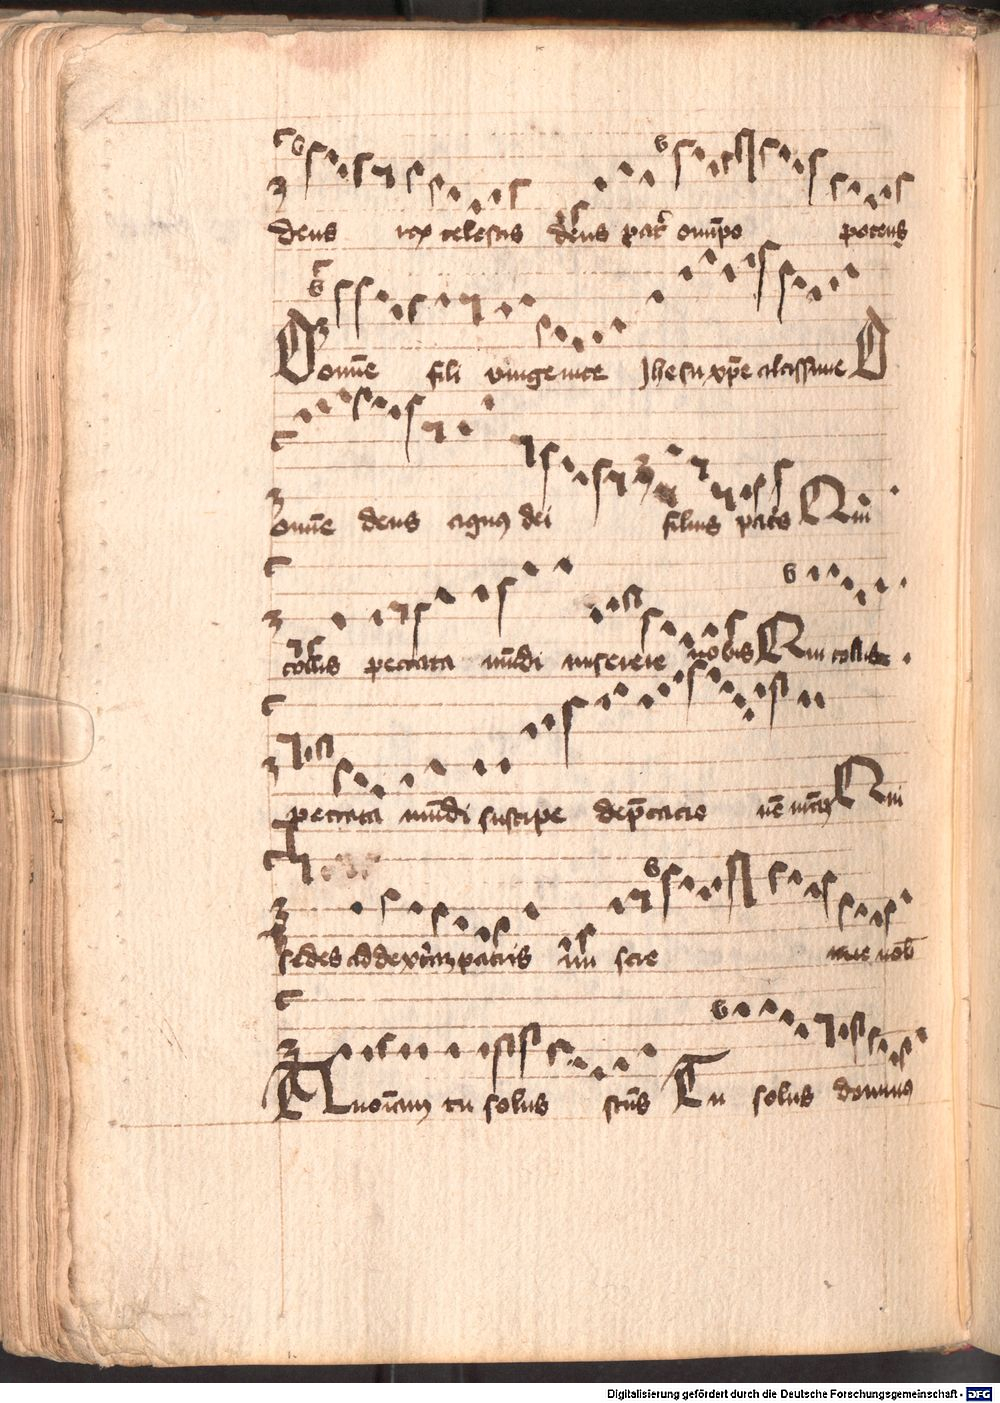 deus rex celestis deus pat̄ om̄ipo potens
Domīe fili vnigenite Jhesu xp̄e altissime D
omīe deus agnus dei filius pat̄s Qui
tollis peccata mūdi miserere nobis Qui tollis
peccata mūdi suscipe dep̄cacio nē nr̄am Qui
sedes ad dext̄am patris mi sere rere nob̄
Quoniam tu solus scūs Tu solus dominus
Digitalisierung gefördert durch die Deutsche Forschungsgemeinschaft - DFG